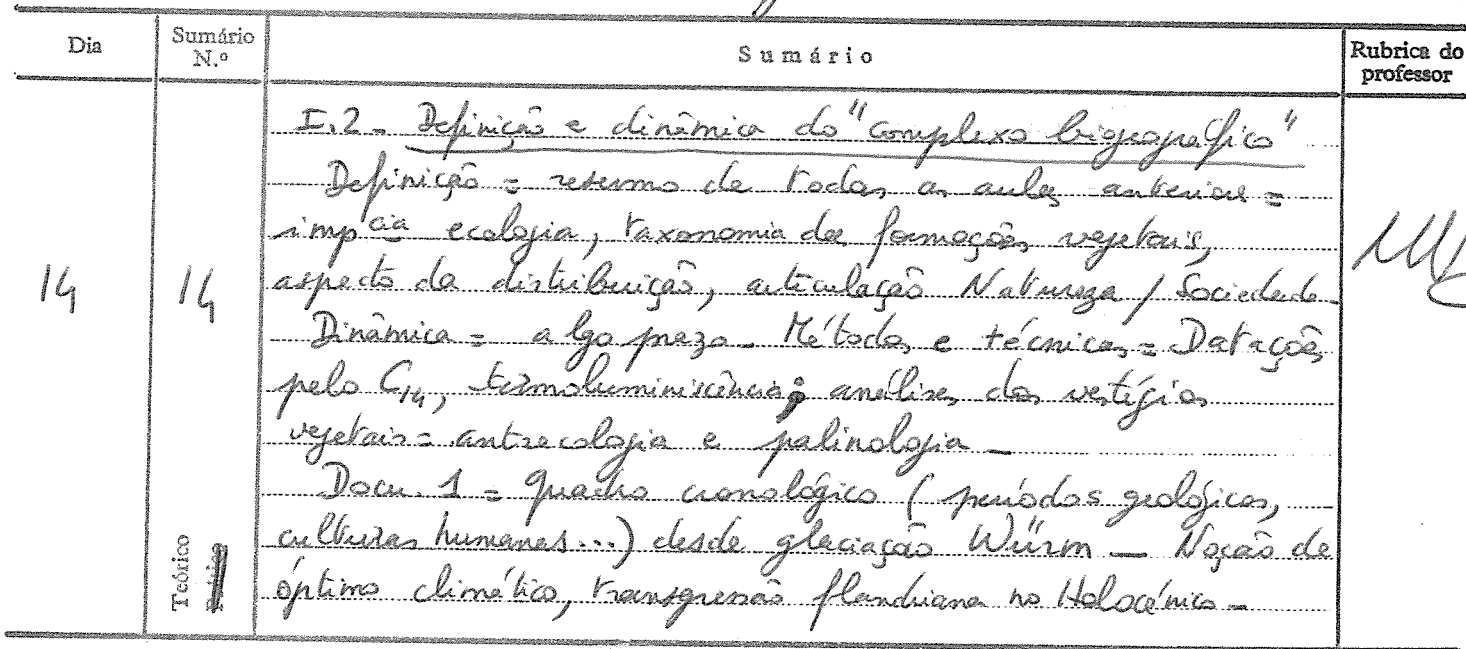 Dia Sumário N.º Sumário Rubrica do professor
I.2 - Definição e dinâmica do "complexo biogeográfico"
Definição = resumo de todas as aulas anteriores =
imp cia ecologia, taxonomia das formações vegetais,
14 14 aspecto da distribuição, articulação Natureza / Sociedade
Dinâmica = a lgo prazo - Métodos e técnicas = Datações
pelo C14, termoluminiscência; análises dos vestígios
vegetais = antracologia e palinologia -
Docu. 1 = quadro cronológico (períodos geológicos,
culturas humanas...) desde glaciação Würm - Noção de
Teórico óptimo climático, transgressão flandriana no Holocénico -